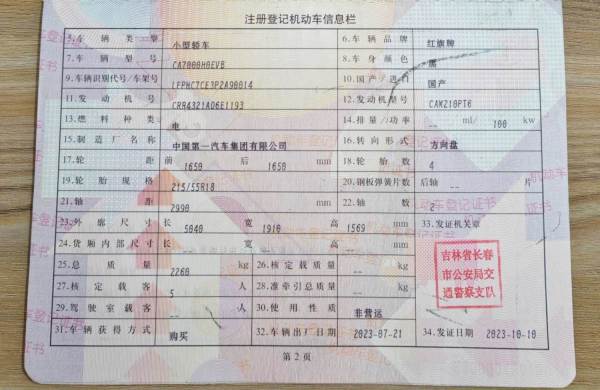 注册登记机动车信息栏
5.车辆类型 小型轿车 6.车辆品牌 红旗牌
7.车辆型号 CA7000H0EVB 8.车身颜色 黑
9.车辆识别代号/车架号 LFPHC7CE3P2A90014 10.国产/进口 国产
11.发动机号 CRR4321A06E1193 12.发动机型号 CAM210PT6
13.燃料种类 电 14.排量/功率 -- ml/ 100 kw
15.制造厂名称 中国第一汽车集团有限公司 16.转向形式 方向盘
17.轮距 前 1650 后 1650 mm 18.轮胎数 4
19.轮胎规格 215/55R18 20.钢板弹簧片数 后轴 -- 片
21.轴距 2990 mm 22.轴数 2
23.外廓尺寸 长 5040 宽 1910 高 1569 mm 33.发证机关章
24.货厢内部尺寸 长 -- 宽 -- 高 -- mm
25.总质量 2260 kg 26.核定载质量 -- kg
27.核定载客 5 人 28.准牵引总质量 -- kg
29.驾驶室载客 -- 人 30.使用性质 非营运
吉林省长春
市公安局交
通警察支队
31.车辆获得方式 购买 32.车辆出厂日期 2023-07-21 34.发证日期 2023-10-10
第2页